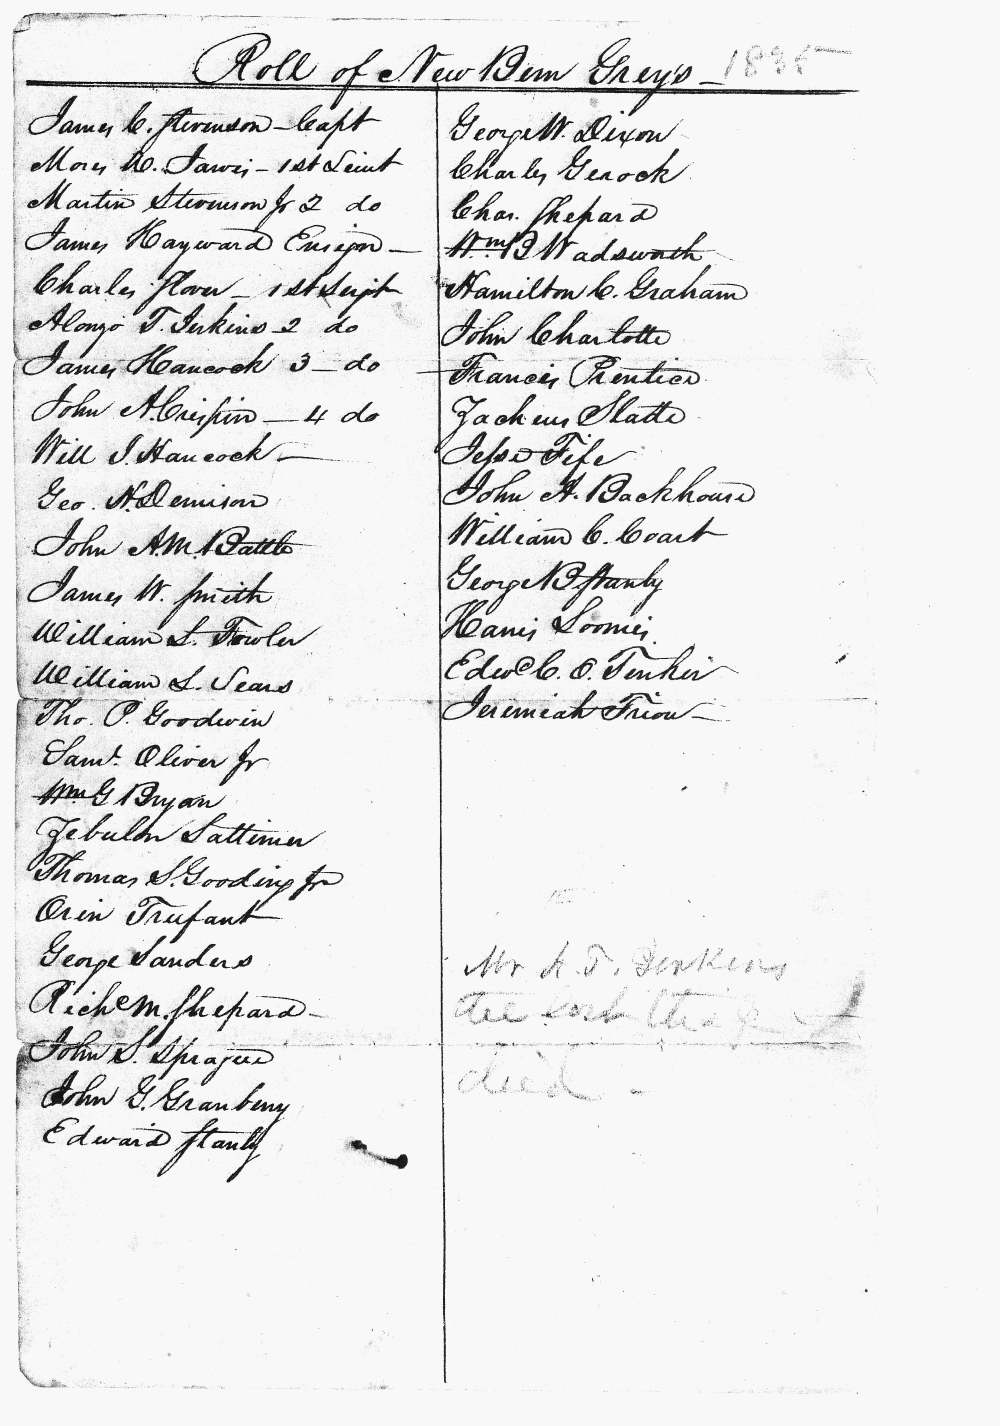 Roll of New Bern Greys - 1835
James C. Stevenson - Capt
Moses W. Jarvis - 1st Leiut
Martin Stevenson Jr 2 do
James Hayward Ensign -
Charles Slover - 1st Serjt
Alonzo T. Jerkins - 2 do
James Hancock 3 - do
John A. Crispin - 4 do
Will J. Hancock -
Geo. N. Demison
John A.M. Battle
James W. Smith
William L. Fowler
William L. Sears
Tho. P. Goodwin
Saml. Oliver Jr
Wm G Bryan
Zebulon Lattimer
Thomas S. Gooding Jr
Orin Trufant
George Sanders
Richd M. Shepard -
John S. Sprague
John G. Granbery
Edward Stanly
George W. Dixon
Charles Gerock
Chas. Shepard
Wm B Wadsworth
Hamilton C. Graham
John Charlotte
Francis Prentice
Zacheus Slatte
Jesse Fife
John A. Backhouse
William C. Coart
George B Stanly
Harris Loomis
Edwd C. O. Tinker
Jeremiah Triou -
Mr A. T. Jerkins
the last
died -